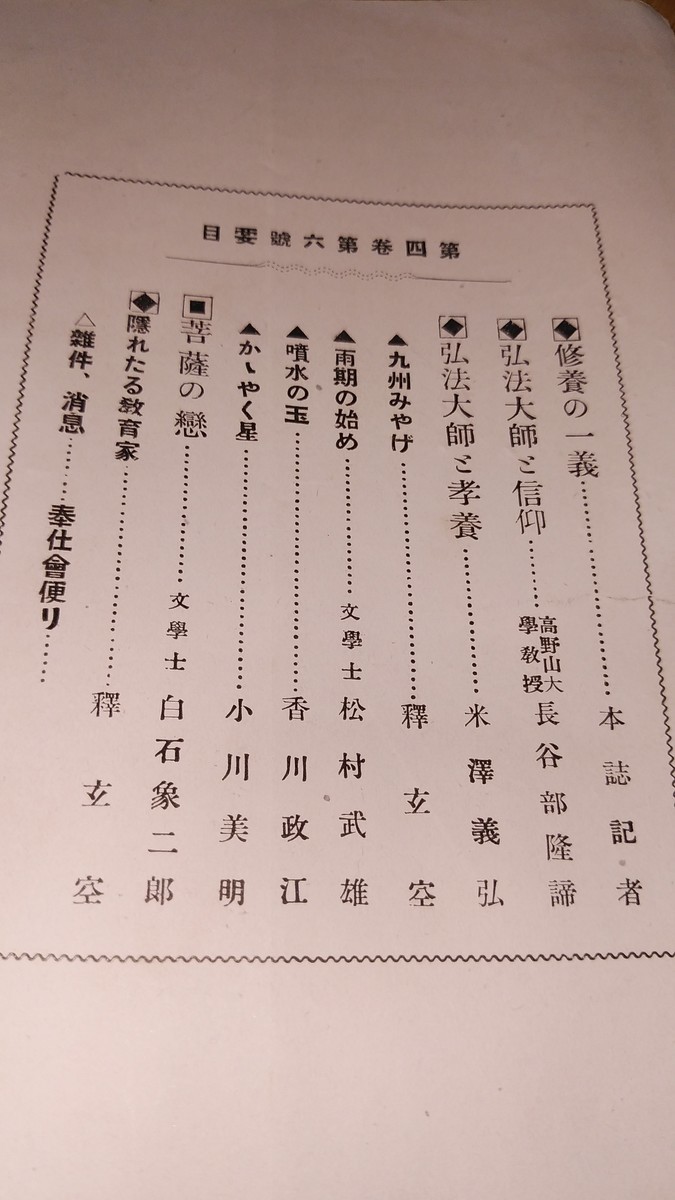 第四卷第六號要目
◆修養の一義……………本誌記者
◆弘法大師と信仰………高野山大學敎授 長谷部隆諦
◆弘法大師と孝養……………米澤義弘
▲九州みやげ……………釋玄空
▲雨期の始め……………文學士 松村武雄
▲噴水の玉……………香川政江
▲かゝやく星……………小川美明
■菩薩の戀……………文學士 白石象二郎
◆隱れたる敎育家……………釋玄空
△雜件、消息……奉仕會便り……